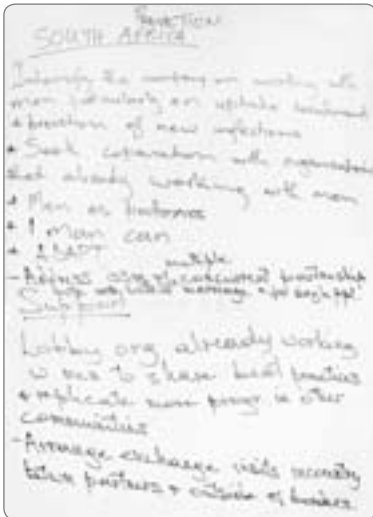 SOUTH AFRICA
Intensify the working on working with
men particularly on uptake treatment
+ prevention of new infections
* Seek cooperation with organisations
that already working with men
* Men as Partners
* 1 man can
*
multiple
- Address concurrent partnership
marriage
Support
Lobby org. already working
w men to share best practices
+ replicate more progr in other
communities
- Arrange exchange visits
btwn partners + outside of borders.